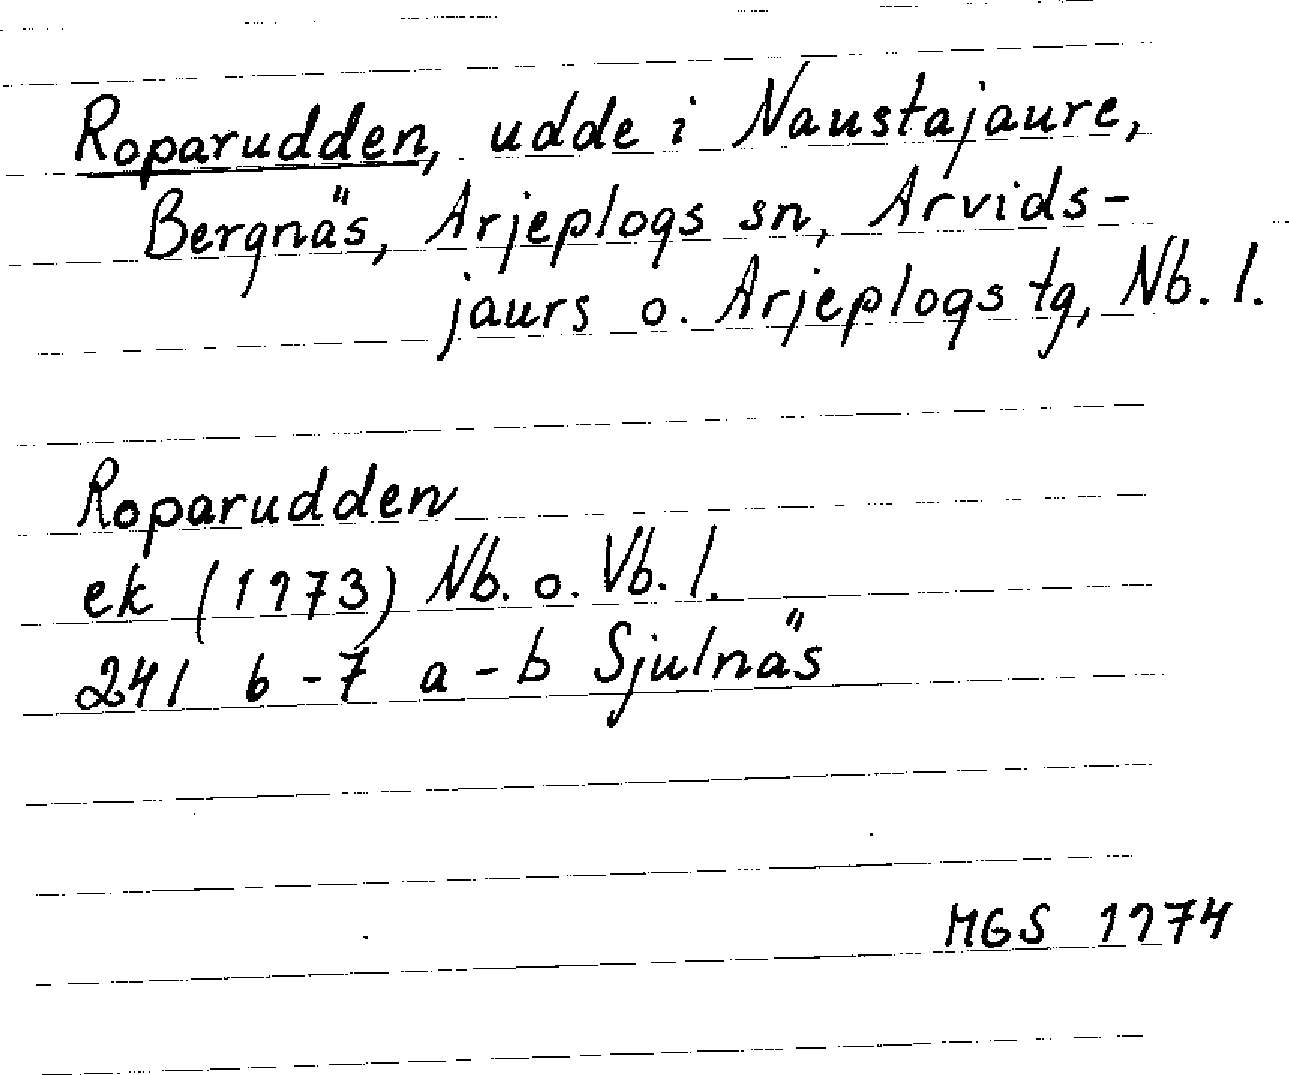 Roparudden, udde i Naustajaure,
Bergnäs, Arjeplogs sn, Arvids-
jaurs o. Arjeplogs tg, Nb. l.
Roparudden
ek (1973) Nb. o. Vb. l.
241 b - 7 a - b Sjulnäs
MGS 1974